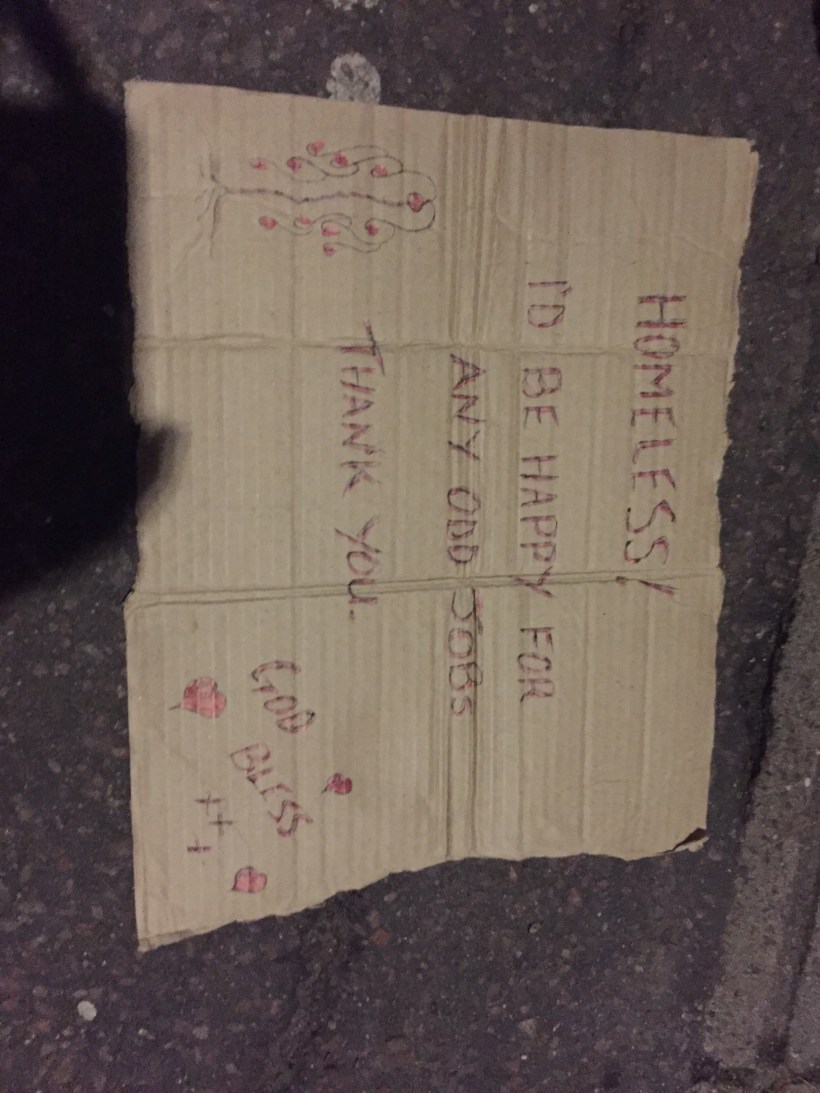 HOMELESS!
I'D BE HAPPY FOR
ANY ODD JOBS
THANK YOU.
GOD
BLESS